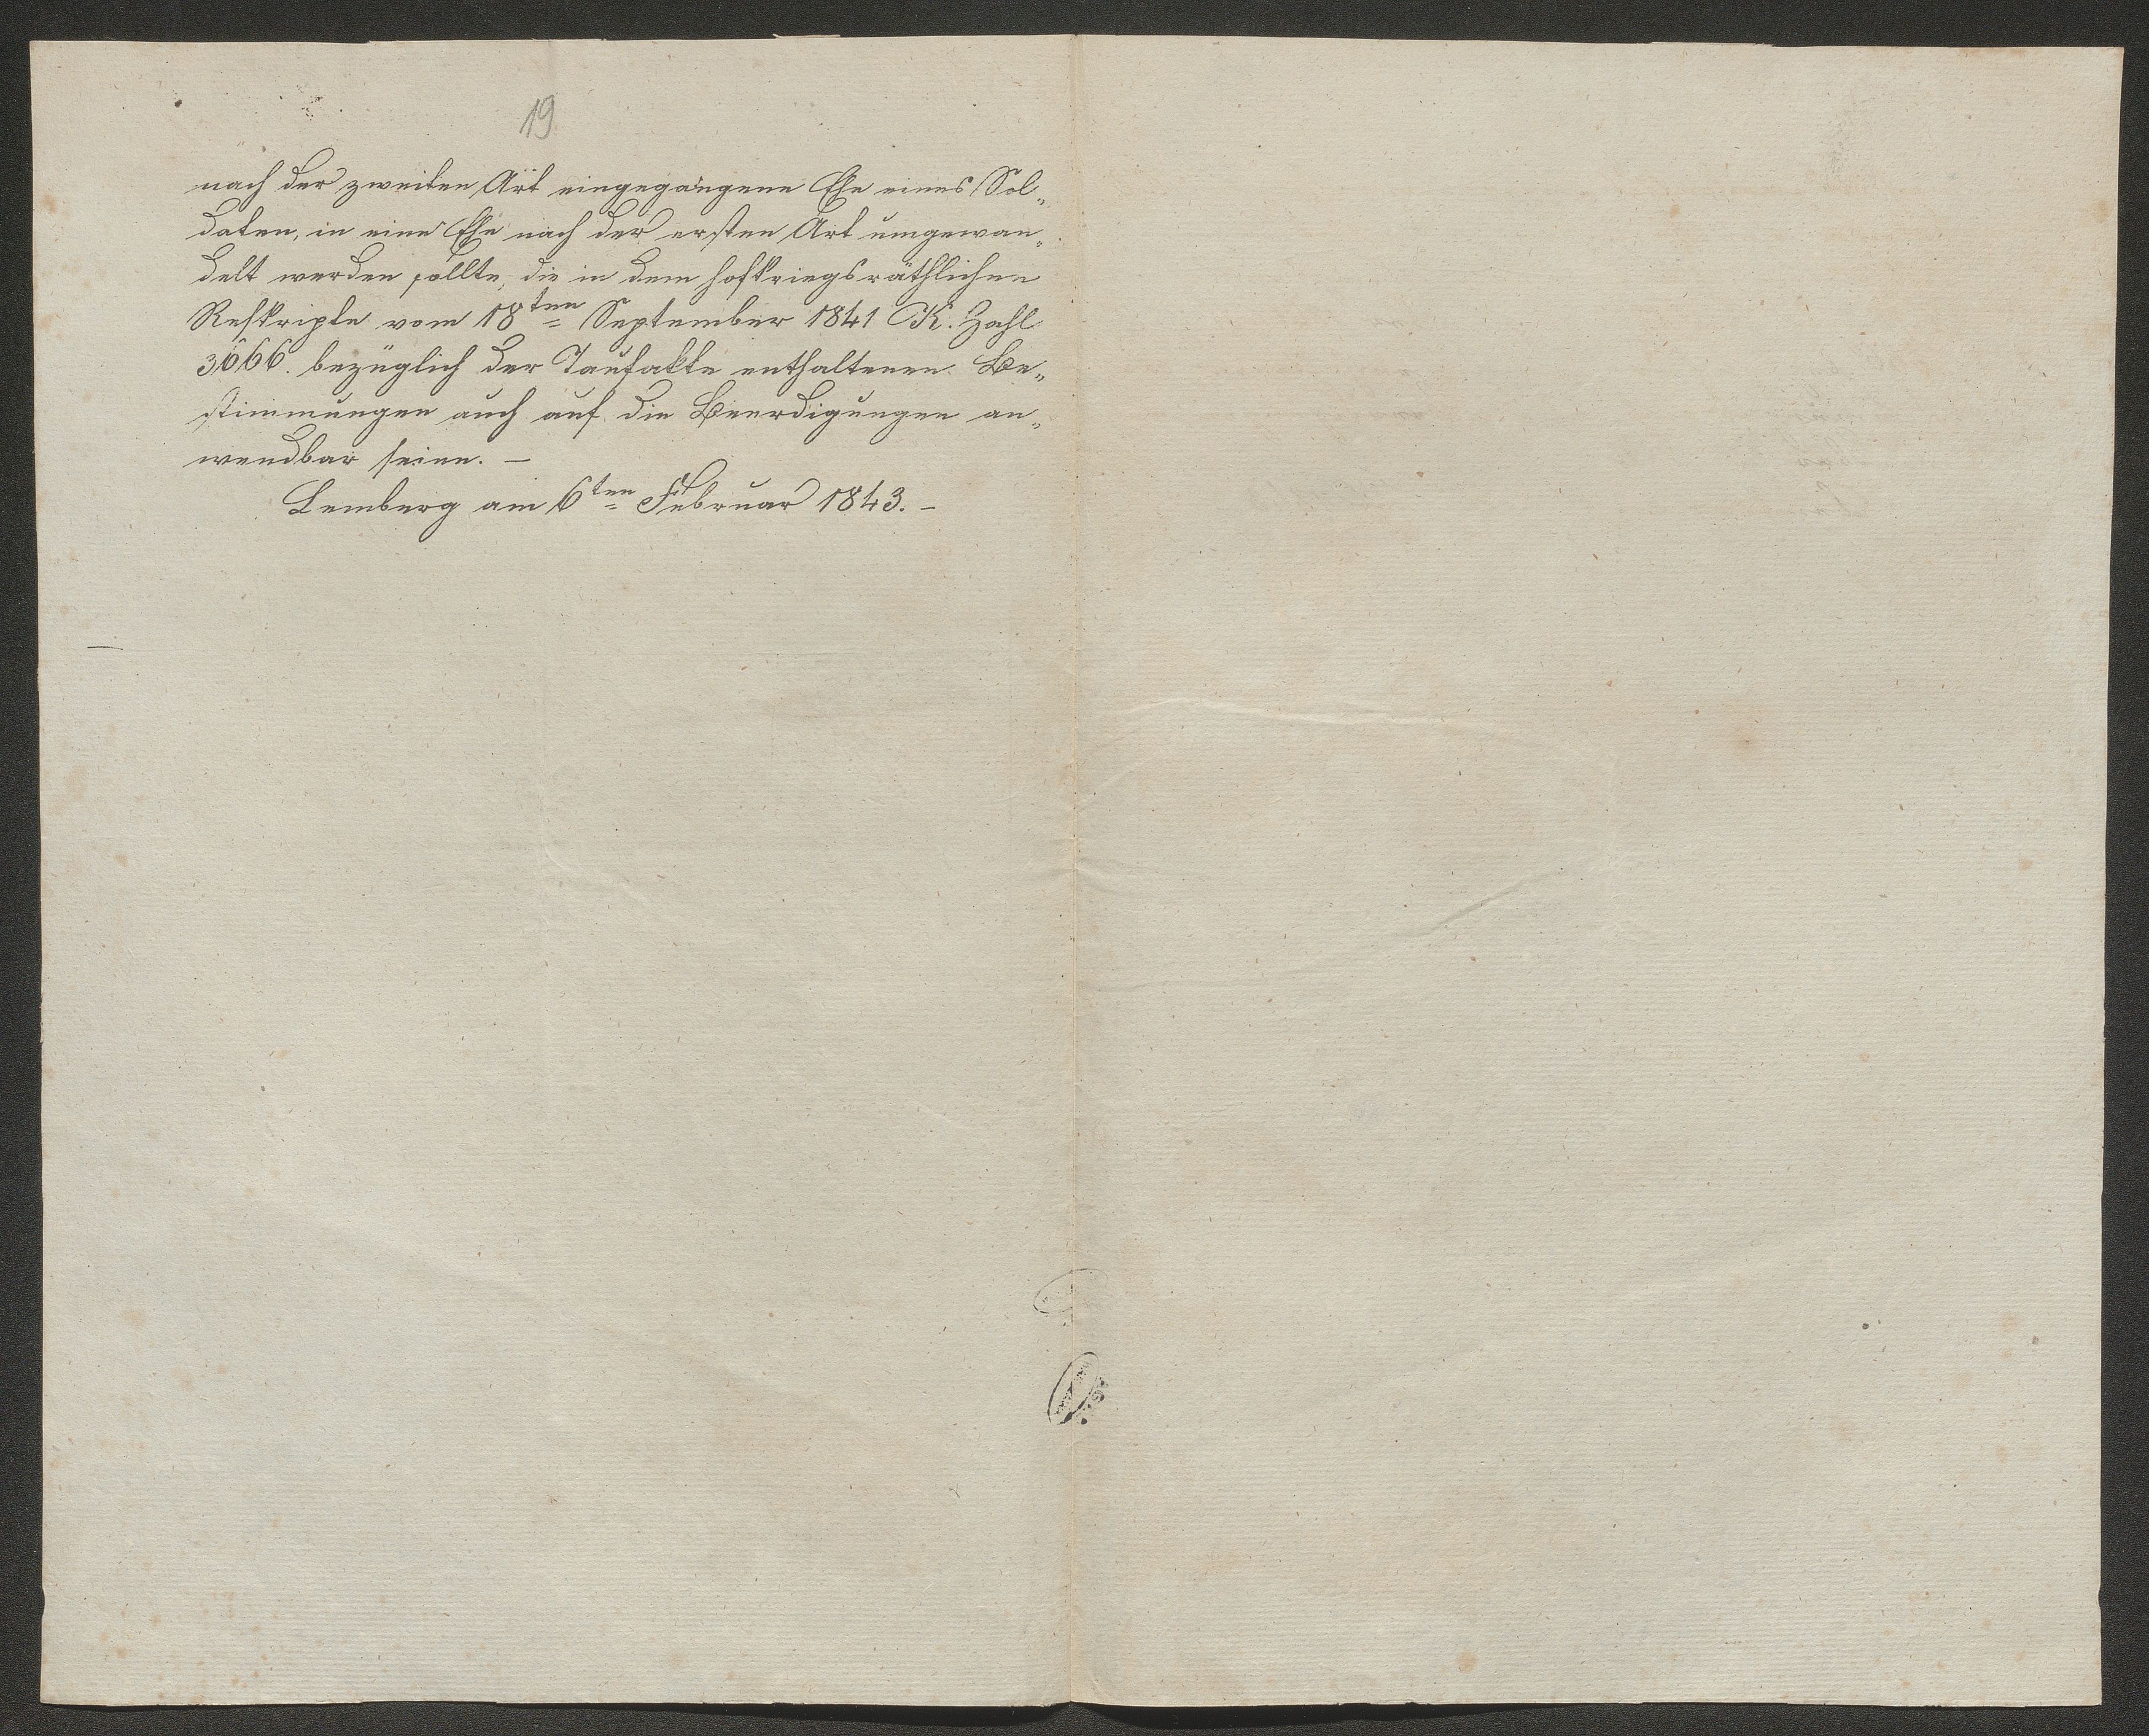 19
nach der zweiten Art eingegangene Ehe eines Sol„
daten, in eine Ehe nach der ersten Art umgewan„
delt werden sollte, die in dem hofkriegsräthlichen
Reskripte vom 18ten September 1841 K. Zahl
3666. bezüglich der Taufakte enthaltenen Be„
stimmungen auch auf die Beerdigungen an„
wendbar seien. —
Lemberg am 6ten Februar 1843. –